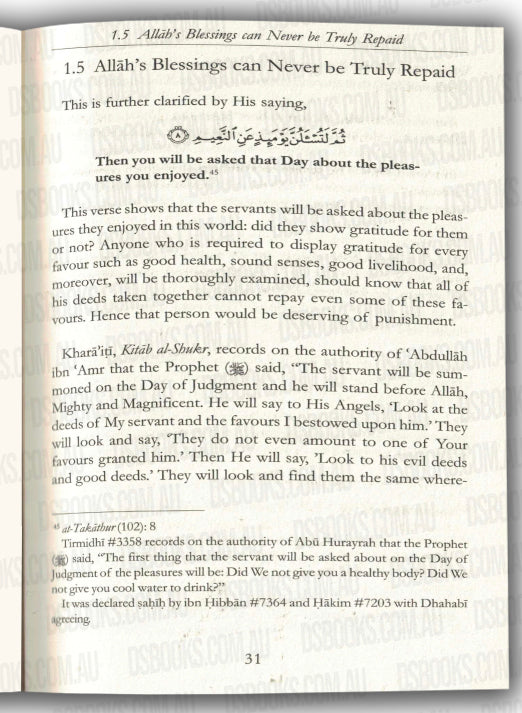 1.5 Allāh's Blessings can Never be Truly Repaid
1.5 Allāh's Blessings can Never be Truly Repaid
This is further clarified by His saying,
ثُمَّ لَتُسْـَٔلُنَّ يَوْمَئِذٍ عَنِ ٱلنَّعِيمِ ۝٨
Then you will be asked that Day about the pleas-
ures you enjoyed.⁴⁵
This verse shows that the servants will be asked about the pleas-
ures they enjoyed in this world: did they show gratitude for them
or not? Anyone who is required to display gratitude for every
favour such as good health, sound senses, good livelihood, and,
moreover, will be thoroughly examined, should know that all of
his deeds taken together cannot repay even some of these fa-
vours. Hence that person would be deserving of punishment.
Kharā'iṭī, Kitāb al-Shukr, records on the authority of 'Abdullāh
ibn 'Amr that the Prophet (ﷺ) said, "The servant will be sum-
moned on the Day of Judgment and he will stand before Allāh,
Mighty and Magnificent. He will say to His Angels, 'Look at the
deeds of My servant and the favours I bestowed upon him.' They
will look and say, 'They do not even amount to one of Your
favours granted him.' Then He will say, 'Look to his evil deeds
and good deeds.' They will look and find them the same where-
⁴⁵ at-Takāthur (102): 8
Tirmidhī #3358 records on the authority of Abū Hurayrah that the Prophet
(ﷺ) said, "The first thing that the servant will be asked about on the Day of
Judgment of the pleasures will be: Did We not give you a healthy body? Did We
not give you cool water to drink?"
It was declared ṣaḥīḥ by ibn Ḥibbān #7364 and Ḥākim #7203 with Dhahabī
agreeing.
31
DSBOOKS.COM.AU